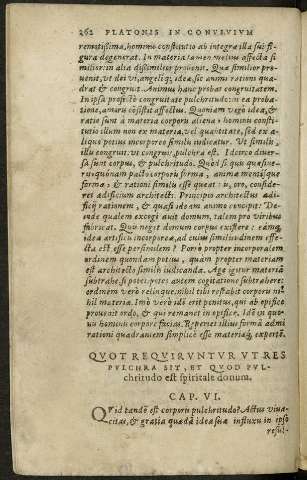 262 PLATONIS IN CONVIVIUM
remotissima, hominis constitutio ab integra illa sui fi-
gura degenerat. In materia tamen melius affecta si
milior: in alia dissimilior prouenit. Quæ similior pro-
uenit, vt dei vi, angeliq; ideæ, sic animi rationi qua-
drat & congruit. Animus hanc probat congruitatem.
In ipsa profectò congruitate pulchritudo: in ea proba-
tione, amoris cõsistit affectus. Quoniam verò idea, &
ratio sunt à materia corporis aliena: hominis consti-
tutio illum non ex materia, vel quantitate, sed ex a-
liquo potius incorporeo simili iudicatur. Vt similis,
illi congruit: vt congruit, pulchra est. Idcirco diuer-
sa sunt corpus, & pulchritudo. Quòd si quis quæsiue-
rit: quónam pacto corporis forma, animæ mentisque
formæ, & rationi similis esse queat: is, oro, conside-
ret ædificium architecti. Principio architectus ædi-
ficij rationem, & quasi ideam animo concipit: De-
inde qualem excogitauit domum, talem pro viribus
fabricat. Quis neget domum corpus existere: eamq;
ideæ artificis incorporeæ, ad cuius similitudinem effe-
cta est esse persimilem? Porrò propter incorporalem
ordinem quendam potius, quàm propter materiam
est architecto similis iudicanda. Age igitur materiã
subtrahe, si potes: potes autem cogitatione subtrahere:
ordinem verò relinque, nihil tibi restabit corporis ni-
hil materiæ. Imò verò idẽ erit penitus, qui ab opifice
prouenit ordo, & qui remanet in opifice. Idẽ in quo-
uis hominis corpore facias. Reperies illius formã animi
rationi quadrantem simplicẽ esse materiæq; expertẽ.
QVOT REQVIRVNTVR VT RES
PVLCHRA SIT, ET QVOD PVL-
chritudo est spiritale donum.
CAP. VI.
Quid tandẽ est corporis pulchritudo? Actus viua-
citas, & gratia quædã ideæ suæ influxu in ipso
resul-